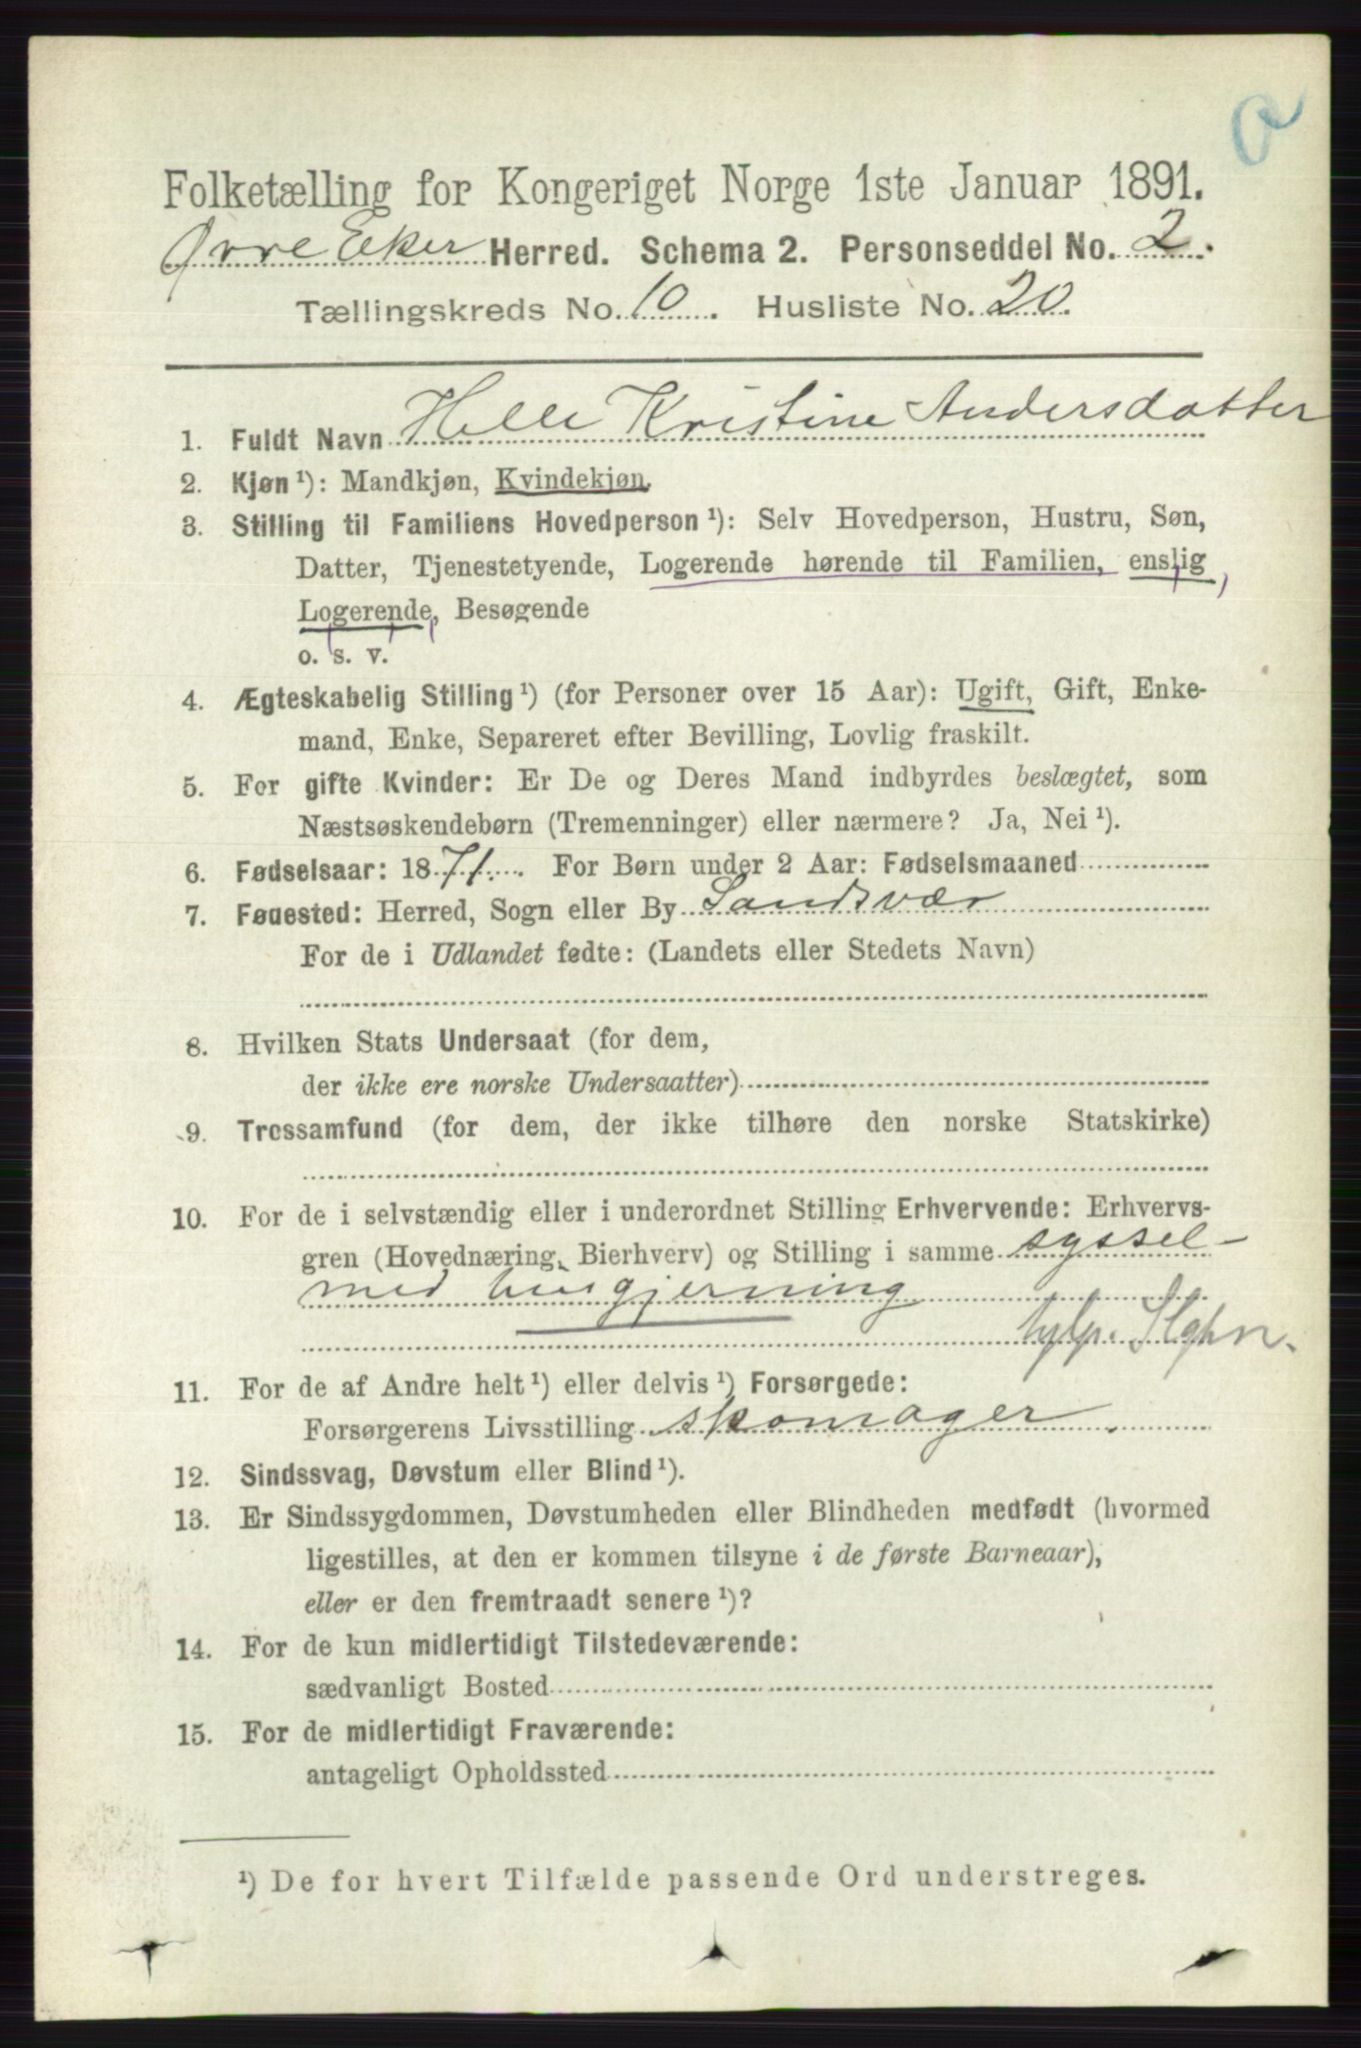 Folketælling for Kongeriget Norge 1ste Januar 1891.
Øvre Eker Herred. Schema 2. Personseddel No. 2.
Tællingskreds No. 10. Husliste No. 20.
1. Fuldt Navn Helle Kristine Andersdatter
2. Kjøn ¹): Mandkjøn, Kvindekjøn.
3. Stilling til Familiens Hovedperson ¹): Selv Hovedperson, Hustru, Søn,
Datter, Tjenestetyende, Logerende hørende til Familien, enslig
Logerende, Besøgende
o. s. v.
4. Ægteskabelig Stilling ¹) (for Personer over 15 Aar): Ugift, Gift, Enke-
mand, Enke, Separeret efter Bevilling, Lovlig fraskilt.
5. For gifte Kvinder: Er De og Deres Mand indbyrdes beslægtet, som
Næstsøskendebørn (Tremenninger) eller nærmere? Ja, Nei ¹).
6. Fødselsaar: 1871. For Børn under 2 Aar: Fødselsmaaned
7. Fødested: Herred, Sogn eller By Sandsvær
For de i Udlandet fødte: (Landets eller Stedets Navn)
8. Hvilken Stats Undersaat (for dem,
der ikke ere norske Undersaatter)
9. Trossamfund (for dem, der ikke tilhøre den norske Statskirke)
10. For de i selvstændig eller i underordnet Stilling Erhvervende: Erhvervs-
gren (Hovednæring, Bierhverv) og Stilling i samme syssel-
med husgjerning
hjlp.
11. For de af Andre helt ¹) eller delvis ¹) Forsørgede:
Forsørgerens Livsstilling skomager
12. Sindssvag, Døvstum eller Blind ¹).
13. Er Sindssygdommen, Døvstumheden eller Blindheden medfødt (hvormed
ligestilles, at den er kommen tilsyne i de første Barneaar),
eller er den fremtraadt senere ¹)?
14. For de kun midlertidigt Tilstedeværende:
sædvanligt Bosted
15. For de midlertidigt Fraværende:
antageligt Opholdssted
¹) De for hvert Tilfælde passende Ord understreges.